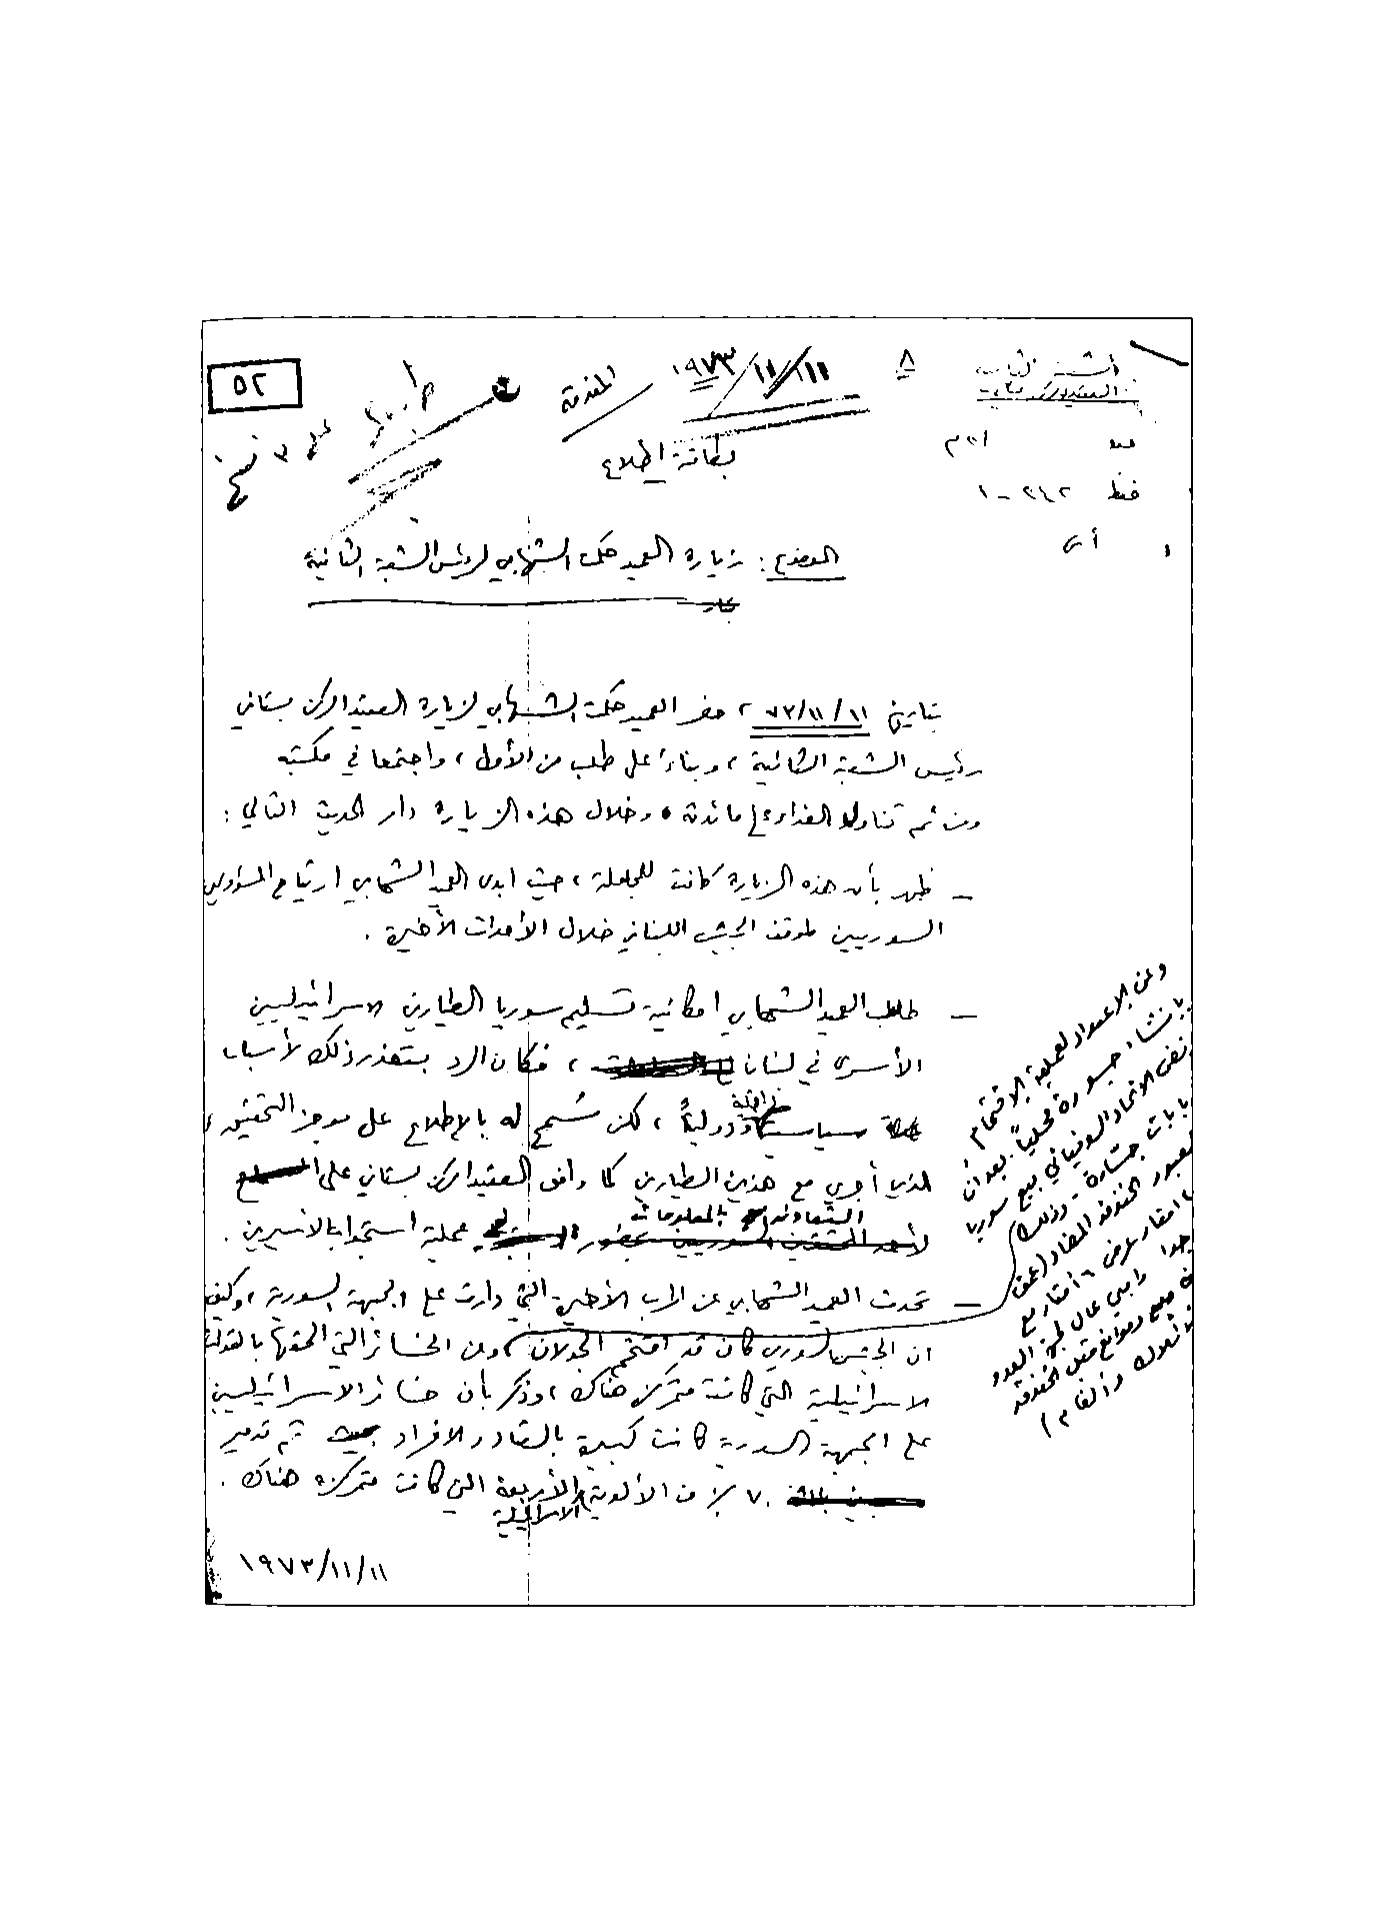 ٨
١٩٧٣/١١/١١
٥٢
على ٣ نسخ
٢٤٢ - ١
بطاقة اطلاع
الموضوع: زيارة العميد حكمت الشهابي لرئيس الشعبة الثانية
بتاريخ ٧٣/١١/١١ ، حضر العميد حكمت الشهابي لزيارة العقيد الركن بستاني
رئيس الشعبة الثانية ، وبناءً على طلب من الأول ، واجتمعا في مكتبه
ومن ثم تناولا الغداء مائدته ، وخلال هذه الزيارة دار الحديث التالي :
- ظهر بأن هذه الزيارة كانت للمجاملة ، حيث ابدى العميد الشهابي ارتياح المسؤولين
السوريين لموقف الجيش اللبناني خلال الأحداث الأخيرة .
- طلب العميد الشهابي امكانية تسليم سوريا الطيارين الاسرائيليين
الأسرى في لبنان ، فكان الرد بتعذر ذلك لأسباب
سياسية ودولية ، لكن سُمح له بالإطلاع على موجز التحقيق
الذي أجري مع هذين الطيارين كما وافق العقيد الركن بستاني على
التعاون بالمعلومات
عملية استجواب الأسيرين .
- تحدث العميد الشهابي عن الحرب الأخيرة التي دارت على الجبهة السورية ، وكيف
ان الجيش السوري كان قد اقتحم الجولان ، وعن الخسائر التي الحقها بالقوات
الاسرائيلية التي كانت متمركزة هناك ، وذكر بأن خسائر الاسرائيليين
على الجبهة السورية كانت كبيرة بالعتاد والافراد تم تدمير
٧٠ ٪ من الألوية الأربعة التي كانت متمركزة هناك .
الاسرائيلية
وعن الاعداد لعملية الاقتحام
بإنشاء جسورة محلياً . بعد أن
رفض الاتحاد السوفياتي بيع سوريا
دبابات جسّارة - وذلك
لعبور الخندق المضاد (عمق
امتار عرض ٦ أمتار مع
عال لجهة العدو
وموانع قبل الخندق
أسلاك وألغام)
١٩٧٣/١١/١١